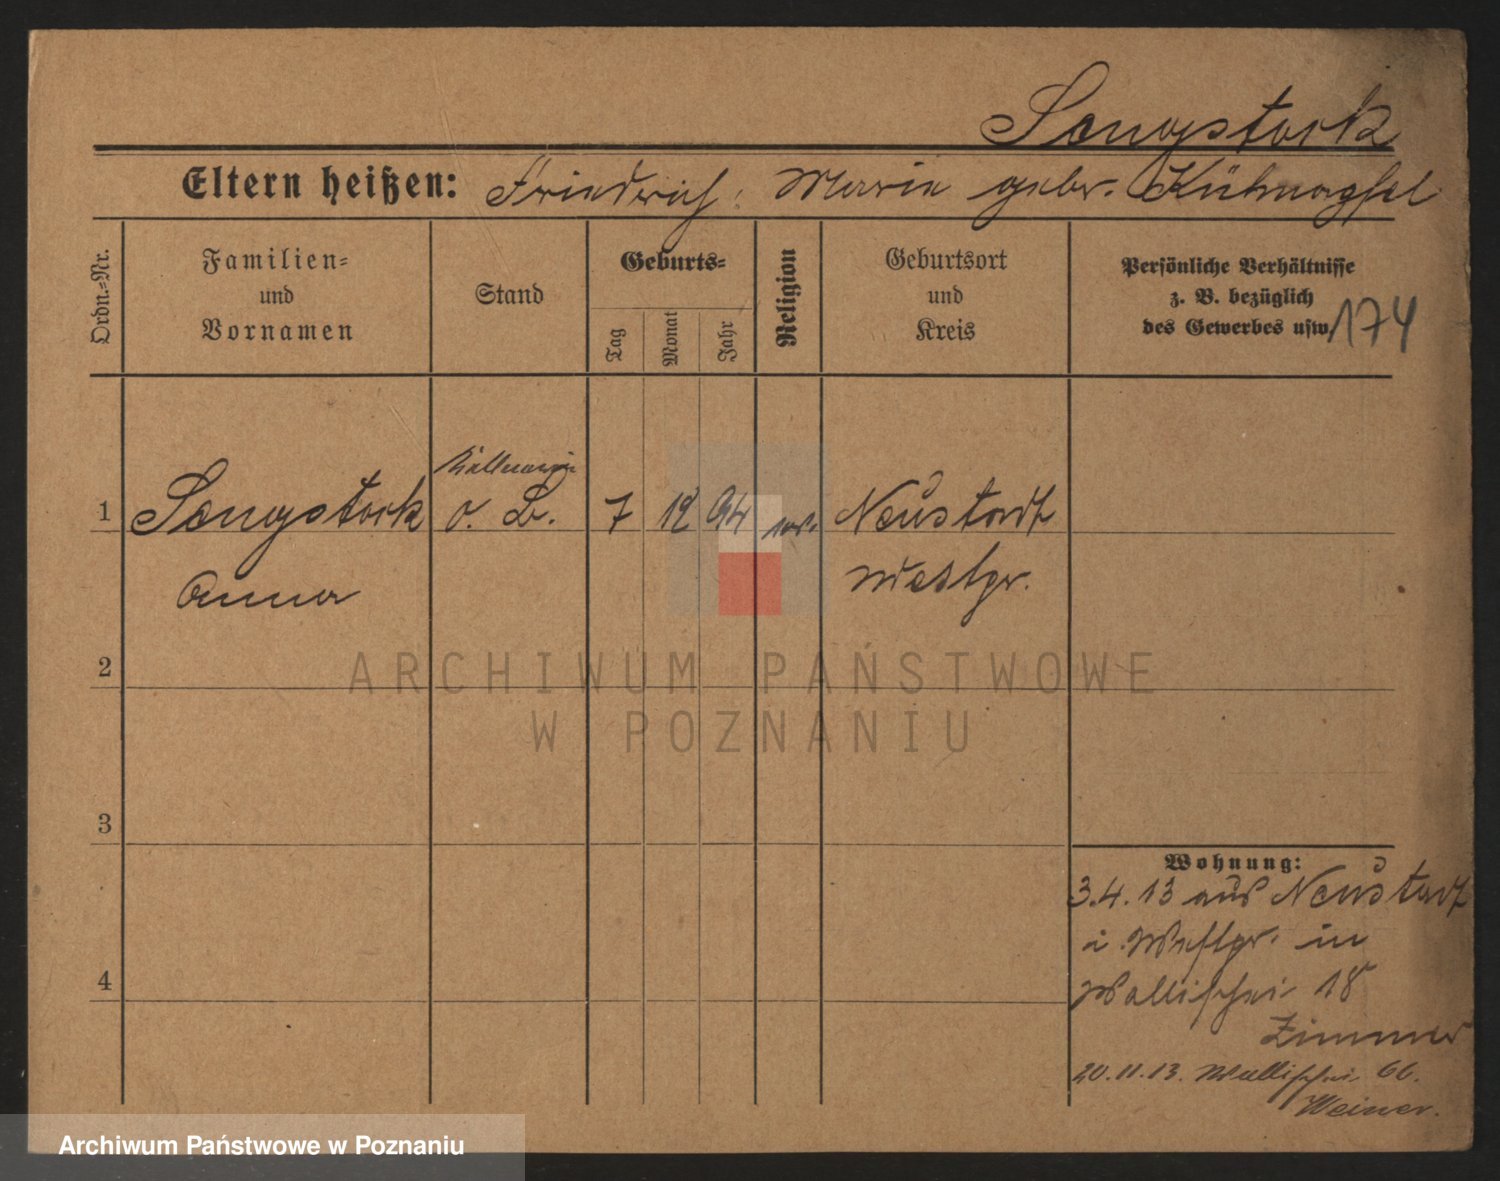 Sengstock
Eltern heißen: Friedrich, Marie gebr. Kühnapfel
Ordn.=Nr.
Familien=
und
Vornamen
Stand
Geburts=
Tag
Monat
Jahr
Religion
Geburtsort
und
Kreis
Persönliche Verhältnisse
z. B. bezüglich
des Gewerbes usw.
174
1 Sengstock o. B. 7 12 94 ev. Neustadt
Anna Westpr.
2
3
4
Wohnung:
3.4.13 aus Neustadt
i. Westpr. in
Wallischei 18
Zimmer
20.11.13. Wallischei 66.
Weiner.
ARCHIWUM PAŃSTWOWE
W POZNANIU
Archiwum Państwowe w Poznaniu